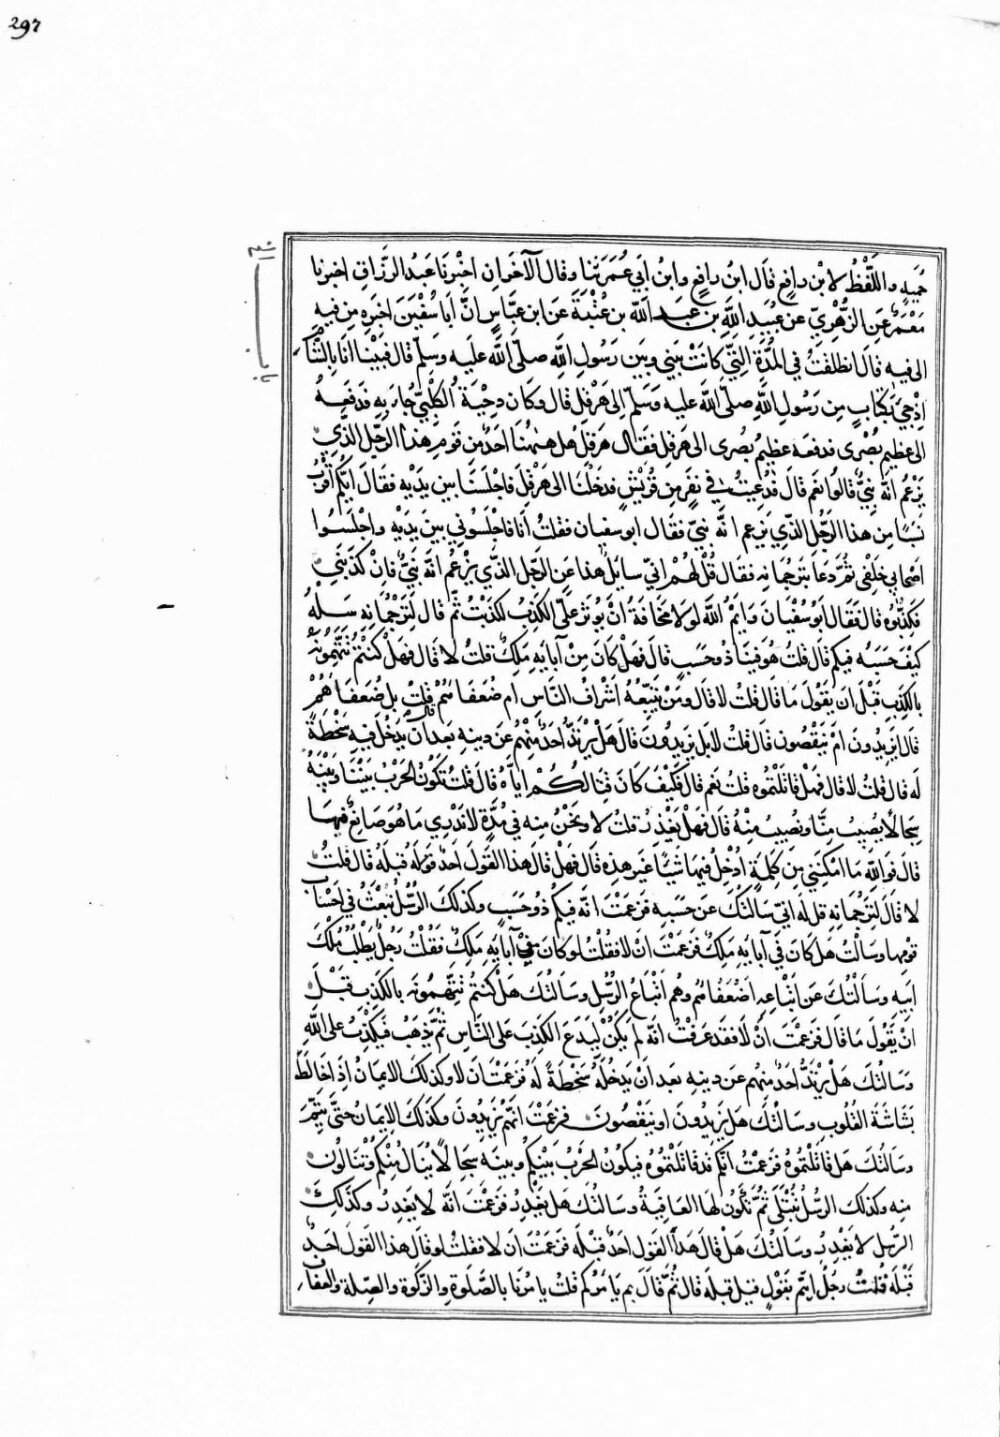 297
حميد واللفظ لابن رافع قال ابن رافع وابن ابي عمر ثنا وقال الآخران اخبرنا عبد الرزاق اخبرنا
معمر عن الزهري عن عبيد الله بن عبد الله بن عتبة عن ابن عباس انّ أبا سفين اخبره من فيه
الى فيه قال انطلقت في المدة التي كانت بيني وبين رسول الله صلى الله عليه وسلم قال فبينا انا بالشام
اذ جيء بكتاب من رسول الله صلى الله عليه وسلم الى هرقل قال وكان دحية الكلبي جاء به فدفعه
الى عظيم بصرى فدفعه عظيم بصرى الى هرقل فقال هرقل هل ههنا احد من قوم هذا الرجل الذي
يزعم انه نبي قالوا نعم قال فدعيت في نفر من قريش فدخلنا الى هرقل فاجلسنا بين يديه فقال ايكم اقرب
نسبا من هذا الرجل الذي يزعم انه نبي فقال ابو سفيان فقلت أنا فاجلسوني بين يديه واجلسوا
اصحابي خلفي ثم دعا بترجمانه فقال قل لهم اني سايل هذا عن الرجل الذي يزعم انه نبي فان كذبني
فكذبوه قال فقال ابو سفيان وايم الله لولا مخافة ان يوثر علي الكذب لكذبت ثم قال لترجمانه سله
كيف حسبه فيكم قال قلت هو فينا ذو حسب قال فهل كان من آبايه ملك قلت لا قال فهل كنتم تتهمونه
بالكذب قبل ان يقول ما قال قلت لا قال ومن يتبعه اشراف الناس ام ضعفاؤهم قلت بل ضعفاؤهم
قال ايزيدون ام ينقصون قال قلت لا بل يزيدون قال هل يرتد احد منهم عن دينه بعد أن يدخل فيه سخطة
له قال قلت لا قال فهل قاتلتموه قلت نعم قال فكيف كان قتالكم اياه قال قلت تكون الحرب بيننا وبينه
سجالا يصيب منّا ونصيب منه قال فهل يغدر قلت لا ونحن منه في مدة لا ندري ما هو صانع فيها
قال فوالله ما امكنني من كلمة ادخل فيها شيئا غير هذه قال فهل قال هذا القول احد قبله قال قلت
لا قال لترجمانه قل له اني سالتك عن حسبه فزعمت انه فيكم ذو حسب وكذلك الرسل تبعث في احساب
قومها وسالت هل كان في آبايه ملك فزعمت ان لا فقلت لو كان في آبايه ملك فقلت رجل يطلب ملك
ابيه وسألتك عن اتباعه اضعفاؤهم وهم اتباع الرسل وسالتك هل كنتم تتهمونه بالكذب قبل
ان يقول ما قال فزعمت أن لا فقد عرفت انه لم يكن ليدع الكذب على الناس ثم يذهب فيكذب على الله
وسالتك هل يرتد احد منهم عن دينه بعد ان يدخله سخطة له فزعمت ان لا وكذلك الايمان اذ اخالط
بشاشة القلوب وسالتك هل يزيدون او ينقصون فزعمت انهم يزيدون وكذلك الايمان حتى يتم
وسالتك هل قاتلتموه فزعمت انكم قد قاتلتموه فيكون الحرب بينكم وبينه سجالا ينال منكم وتنالون
منه وكذلك الرسل تبتلى ثم تكون لها العاقبة وسالتك هل يغدر فزعمت انه لا يغدر وكذلك
الرسل لا يغدر وسالتك هل قال هذا القول احد قبله فزعمت ان لا فقلت لو قال هذا القول احد
قبله قلت رجل ايتم بقول قيل قبله قال ثم قال بم يامركم قلت يامرنا بالصلوة والزكوة والصلة والعفاف